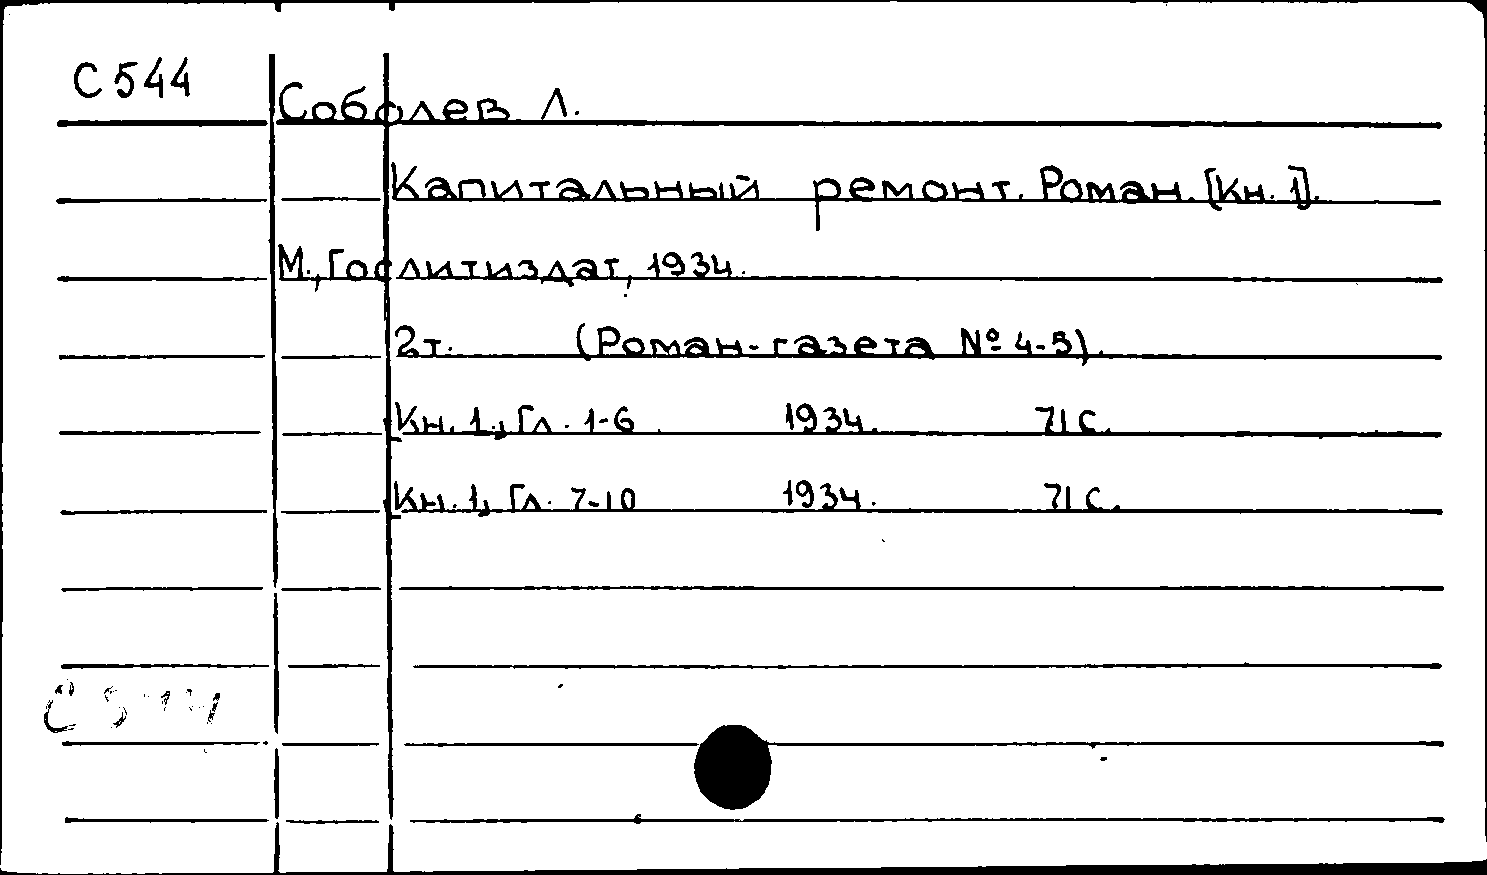 С544
Соболев Л.
Капитальный ремонт. Роман. [Кн. 1].
М., Гослитиздат, 1934.
2т. (Роман-газета № 4-5).
Кн. 1., Гл. 1-6 1934. 71 с.
Кн. 1, Гл. 7-10 1934. 71 с.
С 544